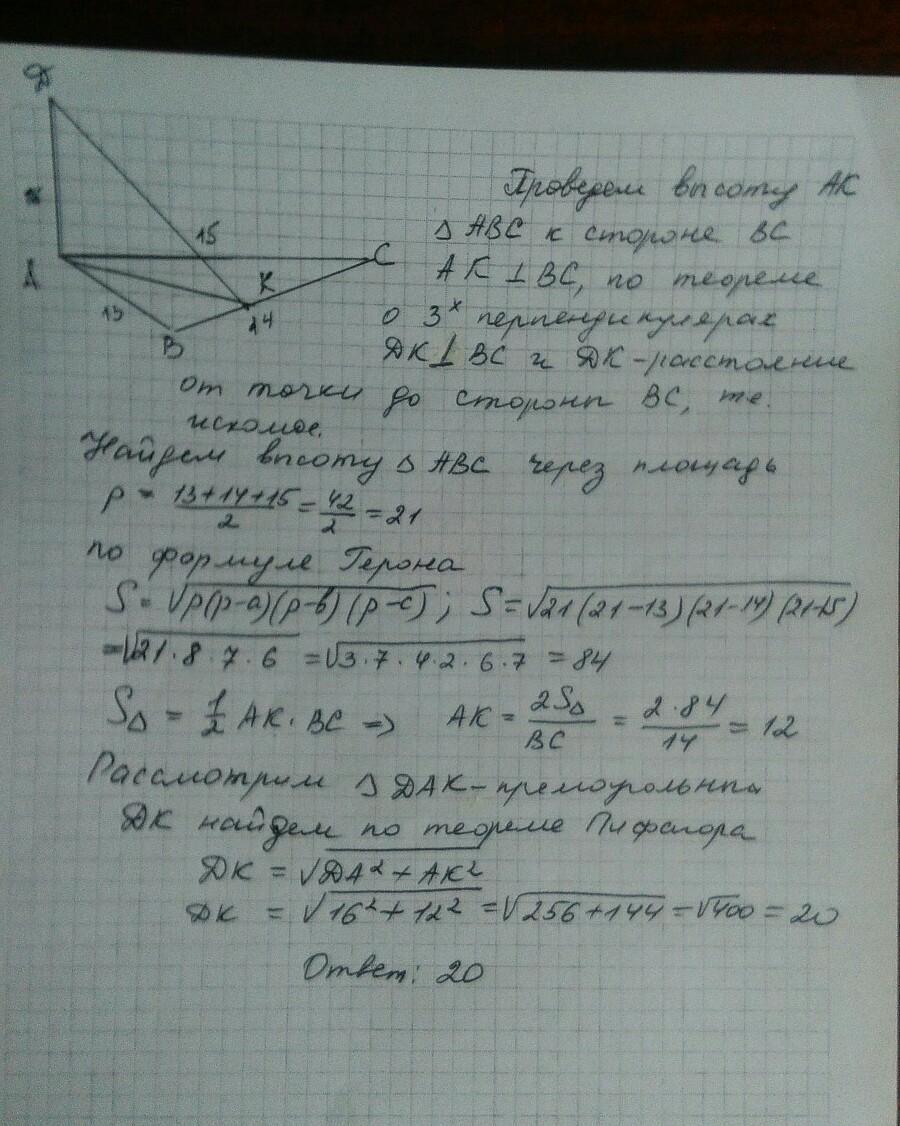 Д
15
A
13
B
K
14
C
Проведем высоту AK
Δ ABC к стороне BC
AK ⊥ BC, по теореме
о 3х перпендикулярах
ДК ⊥ BC и ДК - расстояние
от точки до стороны BC, те.
искомое.
Найдем высоту Δ ABC через площадь
p = (13+14+15)/2 = 42/2 = 21
по формуле Герона
S = √(p(p-a)(p-b)(p-c)); S = √(21(21-13)(21-14)(21-15))
= √(21·8·7·6) = √(3·7·4·2·6·7) = 84
SΔ = 1/2 AK·BC => AK = 2SΔ/BC = 2·84/14 = 12
Рассмотрим Δ DAK - прямоугольный
ДК найдем по теореме Пифагора
ДК = √(DA² + AK²)
ДК = √(16² + 12²) = √(256+144) = √400 = 20
Ответ: 20